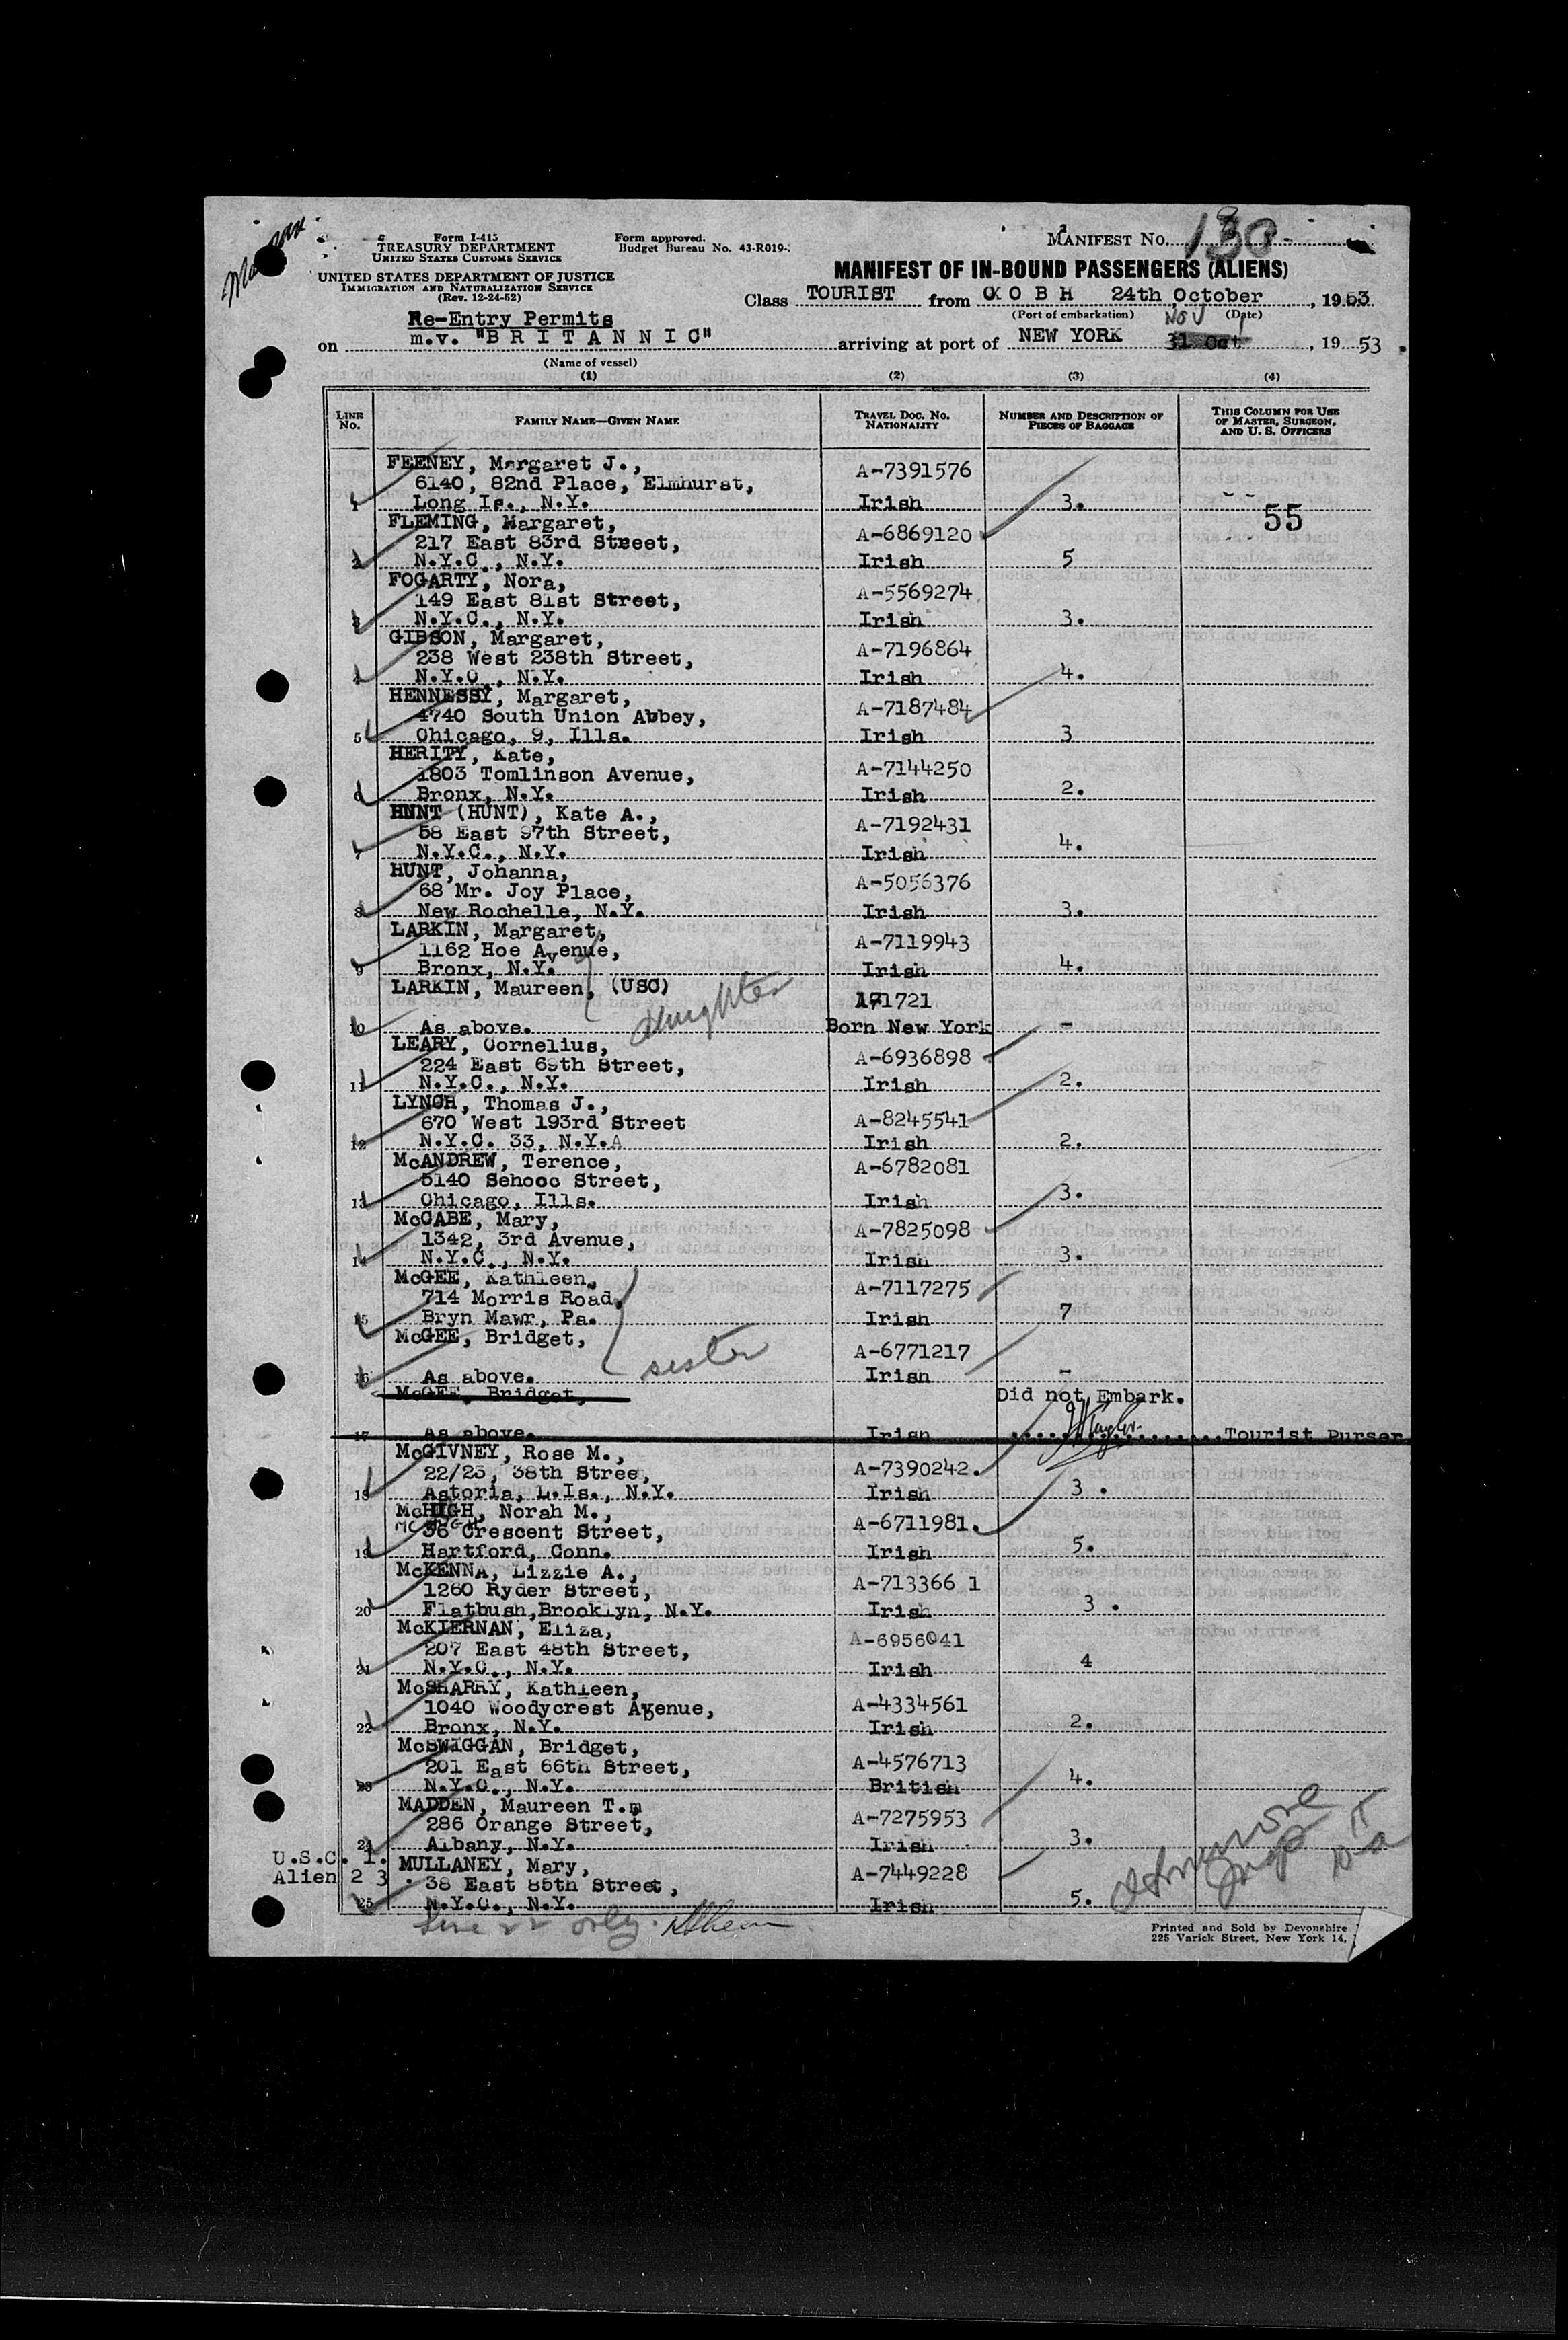 Form I-415
TREASURY DEPARTMENT
UNITED STATES CUSTOMS SERVICE
UNITED STATES DEPARTMENT OF JUSTICE
IMMIGRATION AND NATURALIZATION SERVICE
(Rev. 12-24-52)
Form approved.
Budget Bureau No. 43-R019-
MANIFEST No. 130
MANIFEST OF IN-BOUND PASSENGERS (ALIENS)
Class TOURIST from COBH 24th October, 1953
(Port of embarkation) (Date)
Re-Entry Permits
Nov 1
on m.v. "B R I T A N N I C" arriving at port of NEW YORK 31 Oct, 19 53.
(Name of vessel)
(1) (2) (3) (4)
LINE No. FAMILY NAME—GIVEN NAME TRAVEL DOC. NO. NATIONALITY NUMBER AND DESCRIPTION OF PIECES OF BAGGAGE THIS COLUMN FOR USE OF MASTER, SURGEON, AND U. S. OFFICERS
FEENEY, Margaret J., A-7391576
6140, 82nd Place, Elmhurst,
1 Long Is., N.Y. Irish 3. 55
FLEMING, Margaret, A-6869120
217 East 83rd Street,
2 N.Y.C., N.Y. Irish 5
FOGARTY, Nora, A-5569274
149 East 81st Street,
3 N.Y.C., N.Y. Irish 3.
GIBSON, Margaret, A-7196864
238 West 238th Street,
4 N.Y.C., N.Y. Irish 4.
HENNESSY, Margaret, A-7187484
4740 South Union Abbey,
5 Chicago, 9, Ills. Irish 3
HERITY, Kate, A-7144250
1803 Tomlinson Avenue,
6 Bronx, N.Y. Irish 2.
HNNT (HUNT), Kate A., A-7192431
58 East 97th Street,
7 N.Y.C., N.Y. Irish 4.
HUNT, Johanna, A-5056376
68 Mr. Joy Place,
8 New Rochelle, N.Y. Irish 3.
LARKIN, Margaret, A-7119943
1162 Hoe Avenue,
9 Bronx, N.Y. Irish 4.
LARKIN, Maureen, (USC) 171721
daughter
10 As above. Born New York -
LEARY, Cornelius, A-6936898
224 East 69th Street,
11 N.Y.C., N.Y. Irish 2.
LYNCH, Thomas J., A-8245541
670 West 193rd Street
12 N.Y.C. 33, N.Y.A Irish 2.
McANDREW, Terence, A-6782081
5140 Sehooo Street,
13 Chicago, Ills. Irish 3.
McCABE, Mary, A-7825098
1342, 3rd Avenue,
14 N.Y.C., N.Y. Irish 3.
McGEE, Kathleen, A-7117275
714 Morris Road,
15 Bryn Mawr, Pa. Irish 7
McGEE, Bridget, A-6771217
sister
16 As above. Irish -
McGEE, Bridget, Did not Embark.
17 As above. Irish Tourist Purser
McGIVNEY, Rose M., A-7390242.
22/23, 38th Stree,
18 Astoria, L.Is., N.Y. Irish 3 .
McHIGH, Norah M., A-6711981.
McHUGH
36 Crescent Street,
19 Hartford, Conn. Irish 5.
McKENNA, Lizzie A., A-713366 1
1260 Ryder Street,
20 Flatbush, Brooklyn, N.Y. Irish 3 .
McKIERNAN, Eliza, A-6956041
207 East 48th Street,
21 N.Y.C., N.Y. Irish 4
McSHARRY, Kathleen, A-4334561
1040 Woodycrest Avenue,
22 Bronx, N.Y. Irish 2.
McSWIGGAN, Bridget, A-4576713
201 East 66th Street,
23 N.Y.C., N.Y. British 4.
MADDEN, Maureen T. A-7275953
286 Orange Street,
24 Albany, N.Y. Irish 3.
U.S.C. 1.
MULLANEY, Mary, A-7449228
Alien 2 3.
38 East 85th Street,
25 N.Y.C., N.Y. Irish 5.
Line 22 only.
Printed and Sold by Devonshire
225 Varick Street, New York 14,